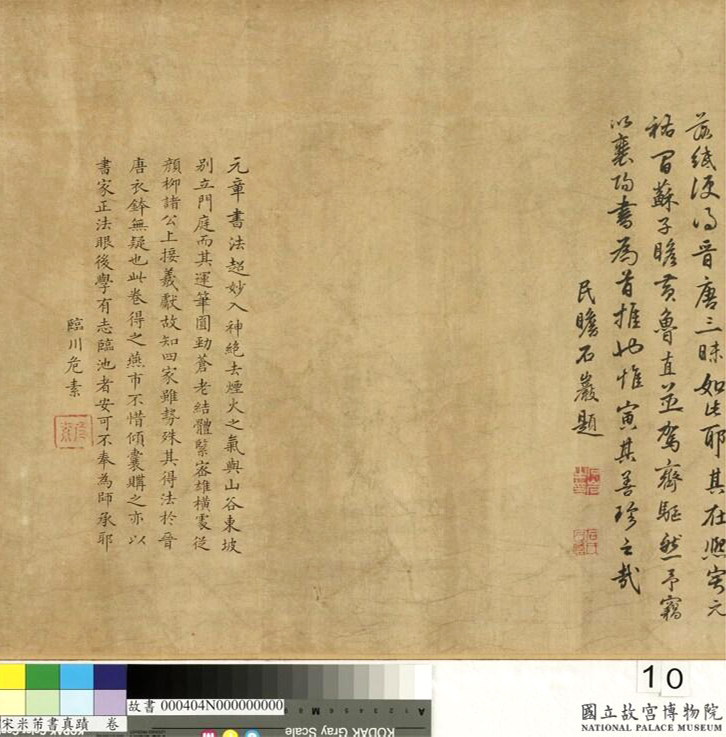 茲紙便得晉唐三昧如此耶其在熙寧元
祐間蘇子瞻黃魯直並駕齊驅然予竊
以襄陽書為首推也惟寅其善珍之哉
民瞻石巖題
元章書法超妙入神絕去煙火之氣與山谷東坡
別立門庭而其運筆圓勁蒼老結體緊密雄橫處從
顏柳諸公上接羲獻故知四家雖勢殊其得法於晉
唐衣鉢無疑也此卷得之燕市不惜傾囊購之亦以
書家正法眼後學有志臨池者安可不奉為師承耶
臨川危素
10
故書 000404N000000000
宋米芾書真蹟 卷
KODAK Gray Scale
國立故宮博物院
NATIONAL PALACE MUSEUM